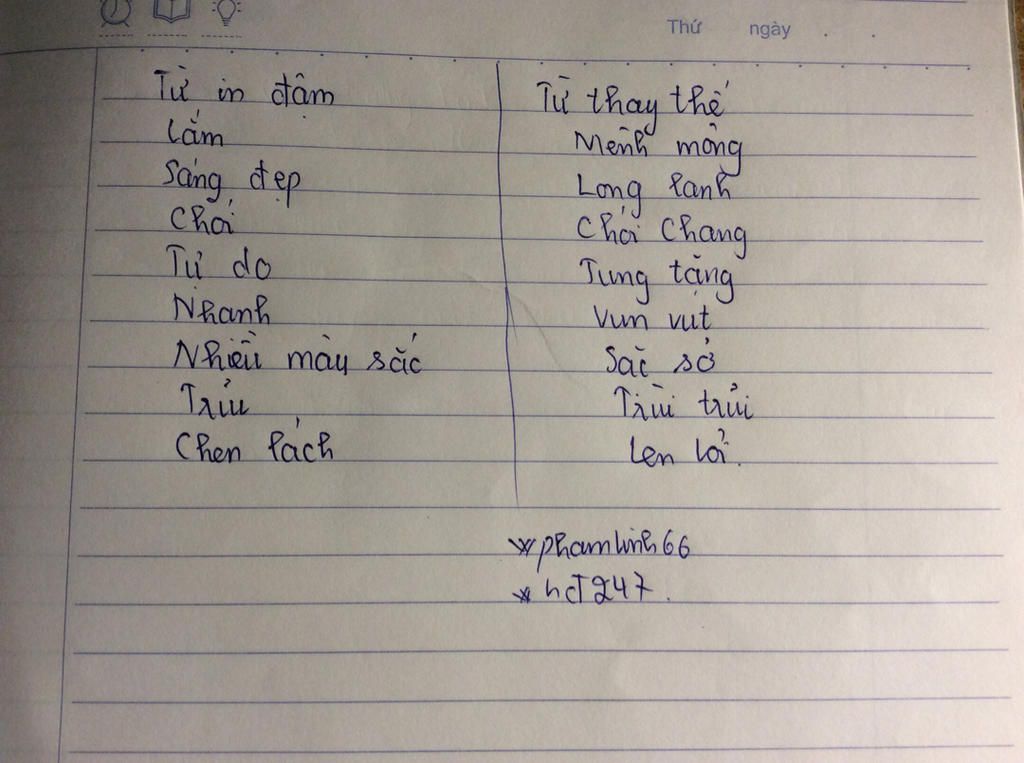 Thứ ngày . .
Từ in đậm
lắm
Sáng đẹp
Chói
Tự do
Nhanh
Nhiều màu sắc
Trĩu
Chen lách
Từ thay thế
Mênh mông
Long lanh
Chói Chang
Tung tăng
Vun vút
Sặc sỡ
Trùi trũi
len lỏi.
*phamlinh66
*hđT247.